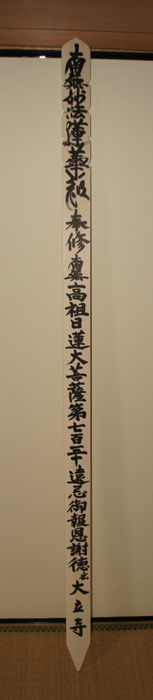 南無妙法蓮華経 奉修 南無高祖日蓮大菩薩第七百二十遠忌御報恩謝徳也 大立寺